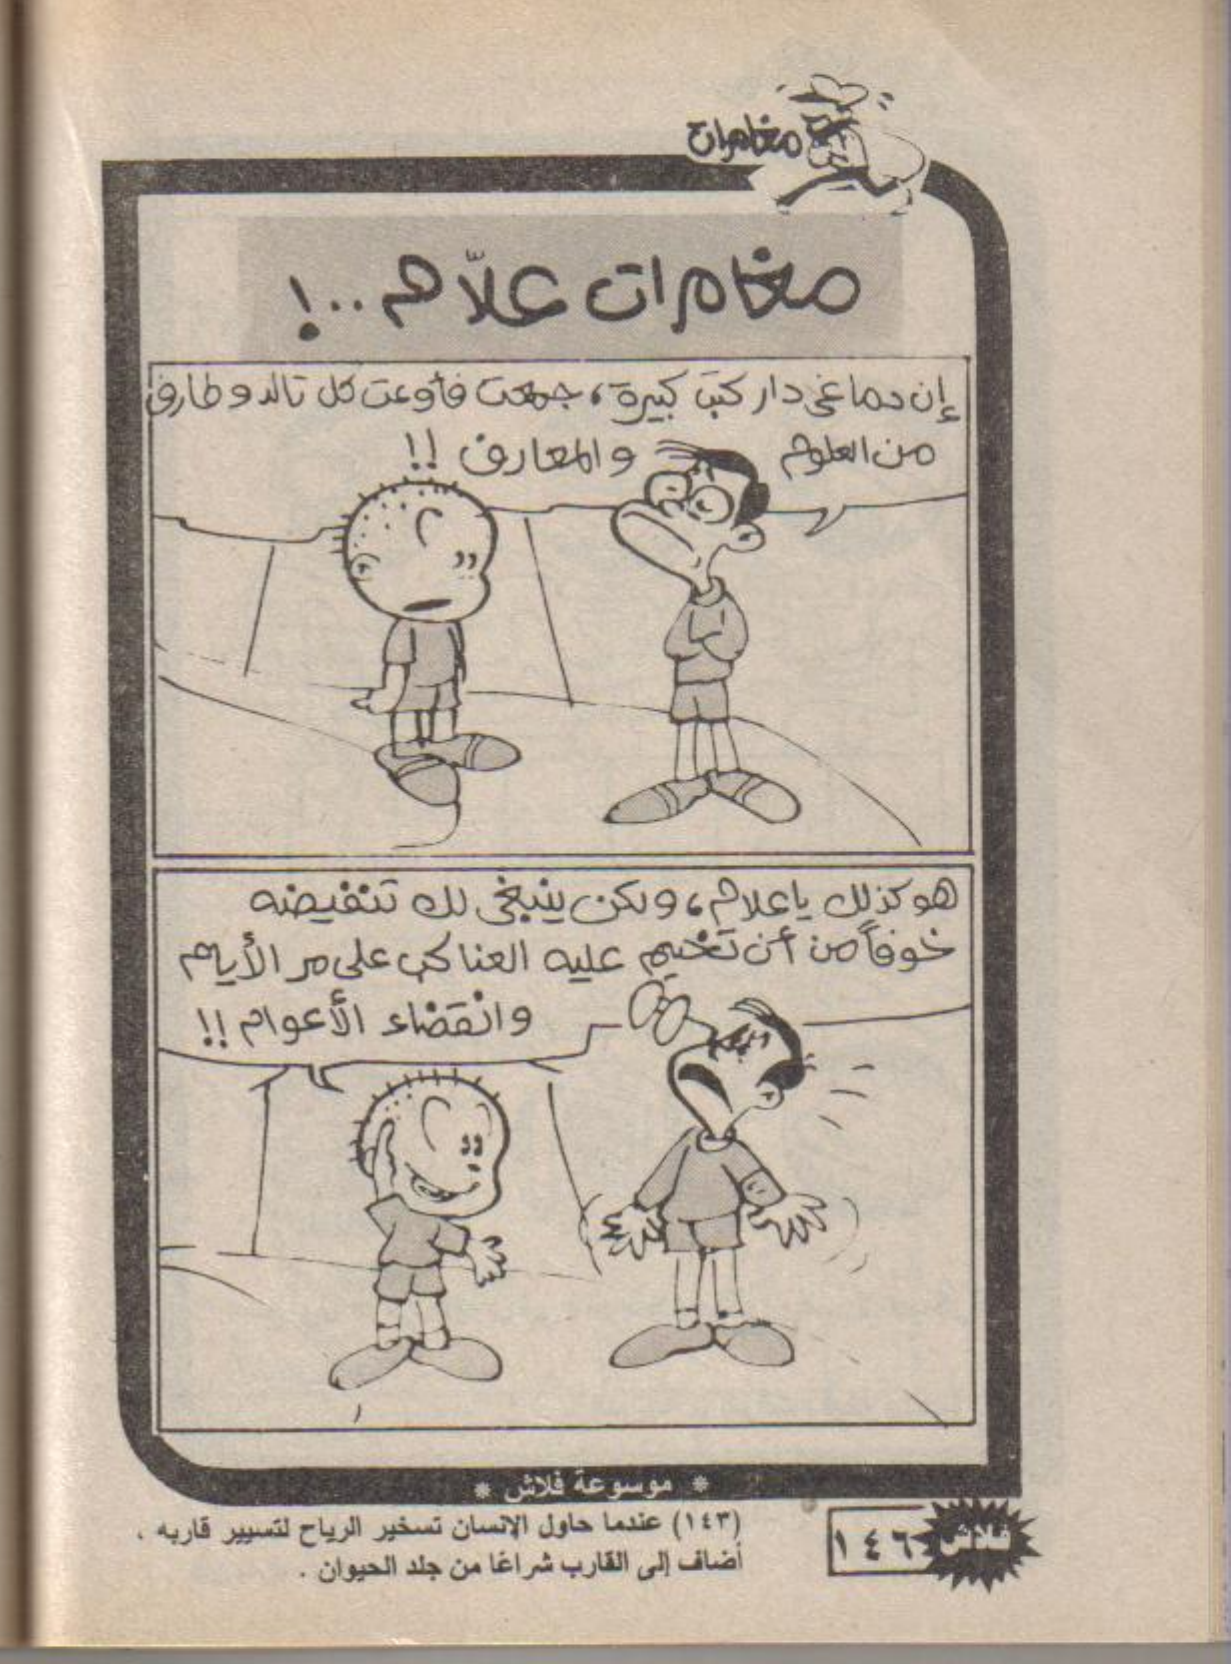 مغامرات
مغامرات علّام..!
إن دماغى دار كتب كبيرة، جمعت فأوعت كل تالد و طارف
من العلوم والمعارف !!
هو كذلك يا علام، ولكن ينبغى لك تنفيضه
خوفاً من أن تخيم عليه العناكب على مر الأيام
وانقضاء الأعوام !!
* موسوعة فلاش *
(١٤٣) عندما حاول الإنسان تسخير الرياح لتسيير قاربه .
أضاف إلى القارب شراعًا من جلد الحيوان .
فلاش ١٤٦